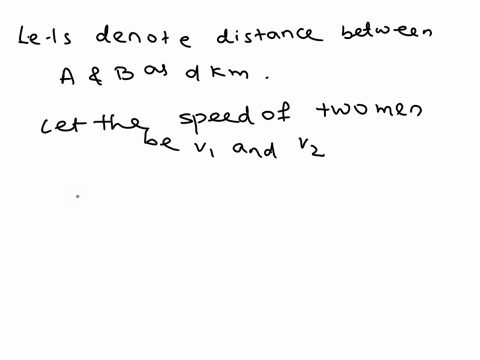 Let's denote distance between
A & B as d km.
Let the speed of two men
be v1 and v2